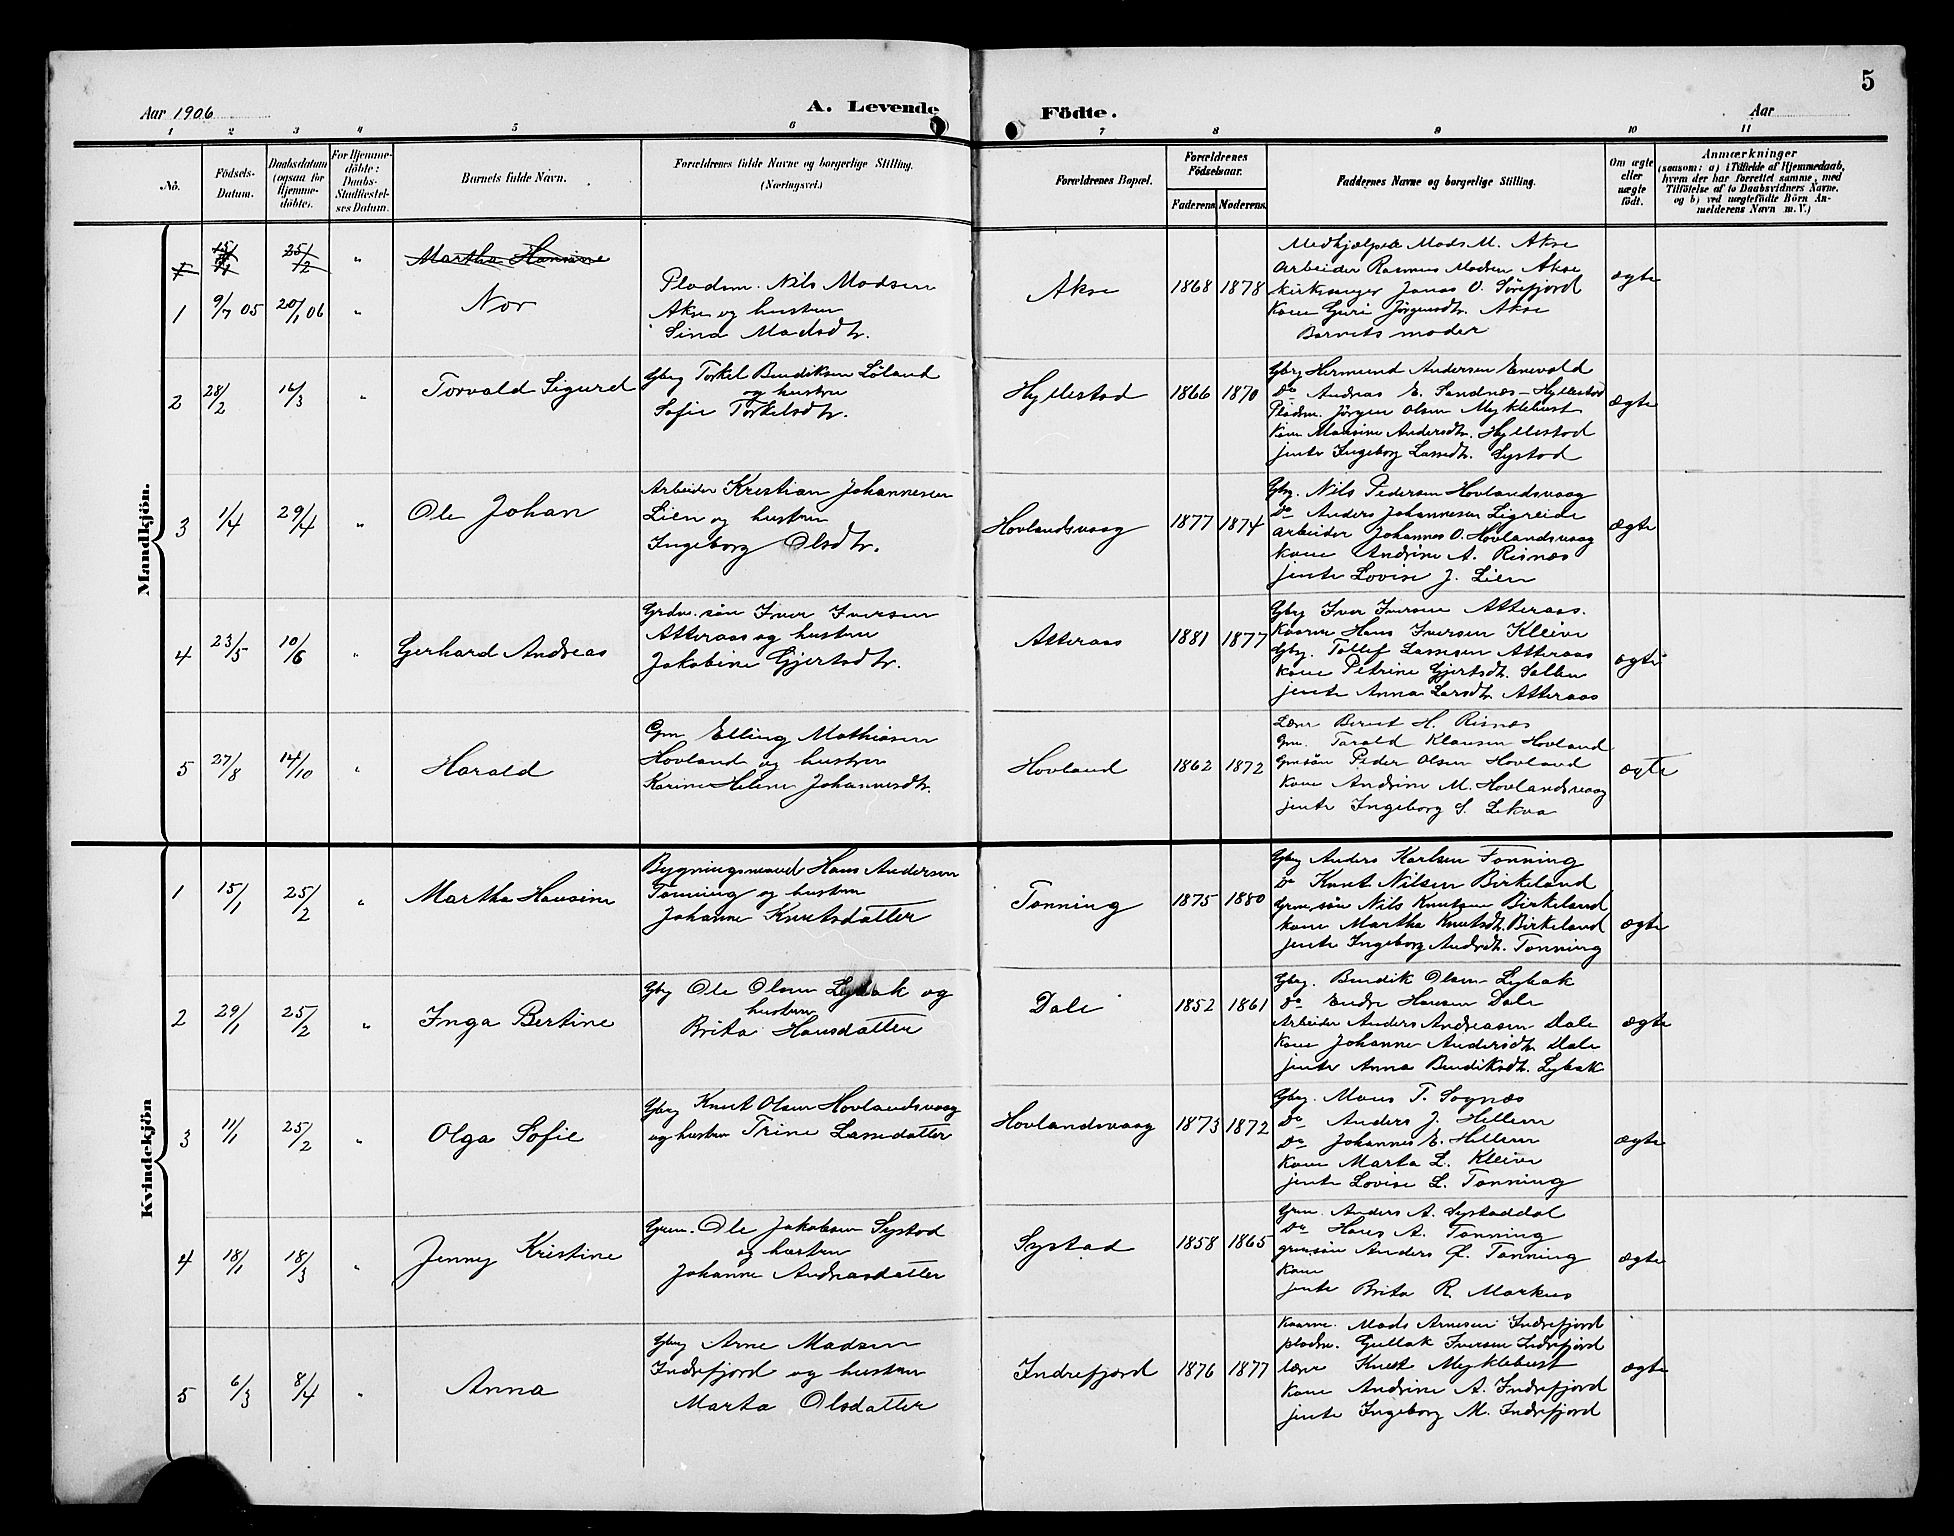 5
Aar 1906
A. Levende
Födte.
Aar
1 2 3 4 5 6 7 8 9 10 11
Nò.
Födsels-
Datum.
Daabsdatum
(ogsaa for
Hjemme-
döbte).
For Hjemme-
döbte:
Daabs-
Stadfæstel-
ses Datum.
Barnets fulde Navn.
Forældrenes fulde Navne og borgerlige Stilling.
(Næringsvei.)
Forældrenes Bopæl.
Forældrenes
Födselsaar.
Faderens. Moderens.
Faddernes Navne og borgerlige Stilling.
Om ægte
eller
uægte
födt.
Anmærkninger
(saasom: a) i Tilfælde af Hjemmedaab,
hvem der har forrettet samme, med
Tilföielse af to Daabsvidners Navne.
og b) ved uægtefödte Börn An-
melderens Navn m. V.)
Mandkjön.
1 15/1 25/2 " Martha Hansine
1 9/7 05 20/1 06 " Nor
Pladsm. Nils Madsen
Akse og hustru
Sina Madsdtr.
Akse 1868 1878
Medhjælper Mads M. Akse
Arbeider Rasmus Madsen Akse
Kirkesanger Jonas O. Sørefjord
Kone Guri Jørgensdtr. Akse
Barnets moder
ægte
2 28/2 16/3 " Torvald Sigurd
Gbrg Torkel Bendiksen Løland
og hustru
Sofie Torkelsdtr.
Hyllestad 1866 1870
Gbrg Hermund Andersen Enevald
Do Andreas E. Sandnæs-Hyllestad
Pladsm. Jörgen Olsen Myklebust
Kone Mansine Andersdtr. Hyllestad
jente Ingeborg Lassedtr. Systad
ægte
3 1/4 29/4 " Ole Johan
Arbeider Kristian Johannesen
Lien og hustru
Ingeborg Olsdtr.
Hovlandsvaag 1877 1874
Gbrg. Nils Pedersen Hovlandsvaag
Do Anders Johannesen Ligreide
arbeider Johannes O. Hovlandsvaag
kone Andrine A. Risnæs
jente Lovise J. Lien
ægte
4 23/5 10/6 " Gerhard Andreas
Grdm. søn Iver Iversen
Atteraas og hustru
Jakobine Gjertsdtr.
Atteraas 1881 1877
Gbrg Iver Iversen Atteraas.
Kaarm Hans Iversen Kleive
Gbrg. Tollef Lassesen Atteraas
Kone Petrine Gjertsdtr. Salbu
jente Anna Larsdtr. Atteraas
ægte
5 27/8 14/10 " Harald
Gm Elling Mathiasen
Hovland og hustru
Karine Helene Johannesdtr.
Hovland 1862 1872
Lærer Bernt H. Risnæs
Gm. Tarald Klausen Hovland
Gmsön Peder Olsen Hovland
Kone Andrine M. Hovlandsvaag
jente Ingeborg S. Lekva
ægte
Kvindekjön
1 15/1 25/2 " Martha Hansine
Bygningsmand Hans Andersen
Tonning og hustru
Johanne Knutsdatter
Tonning 1875 1880
Gbrg Anders Karlsen Tonning
Do Knut Nilsen Birkeland
Grmsøn Nils Knutsen Birkeland
kone Martha Knutsdtr. Birkeland
jente Ingeborg Andrdtr. Tonning
ægte
2 29/1 25/2 " Inga Bertine
Gbrg Ole Olsen Lybak og
hustru
Brita Hansdatter
Dale 1852 1861
Gbrg. Bendik Olsen Lybak
Do Endre Hansen Dale
Arbeider Anders Andreasen Dale
Kone Johanne Andersdtr. Dale
jente Anna Bendiksdtr. Lybak
ægte
3 11/1 25/2 " Olga Sofie
Gbrg Knut Olsen Hovlandsvaag
og hustru Trine Lassedatter
Hovlandsvaag 1873 1872
Gbrg. Mons T. Sognæs
Do Anders J. Hellem
Do Johannes E. Hellem
Kone Marta L. Kleive
jente Lovise L. Tonning
ægte
4 18/1 18/3 " Jenny Kristine
Grm. Ole Jakobsen Systad
og hustru
Johanne Andreasdatter
Systad 1858 1865
Grm. Anders A. Systaddal
Do Hans A. Tonning
grmsön Anders Tonning
Kone
jente Brita R. Markus
ægte
5 6/3 8/4 " Anna
Gbrg Arne Madsen
Indrefjord og hustru
Marta Olsdatter
Indrefjord 1876 1877
Kaarm. Mads Arnesen Indrefjord
pladsm. Gullak Iversen Indrefjord
lærer Knut Myklebust
Kone Andrine A. Indrefjord
jente Ingeborg M. Indrefjord
ægte